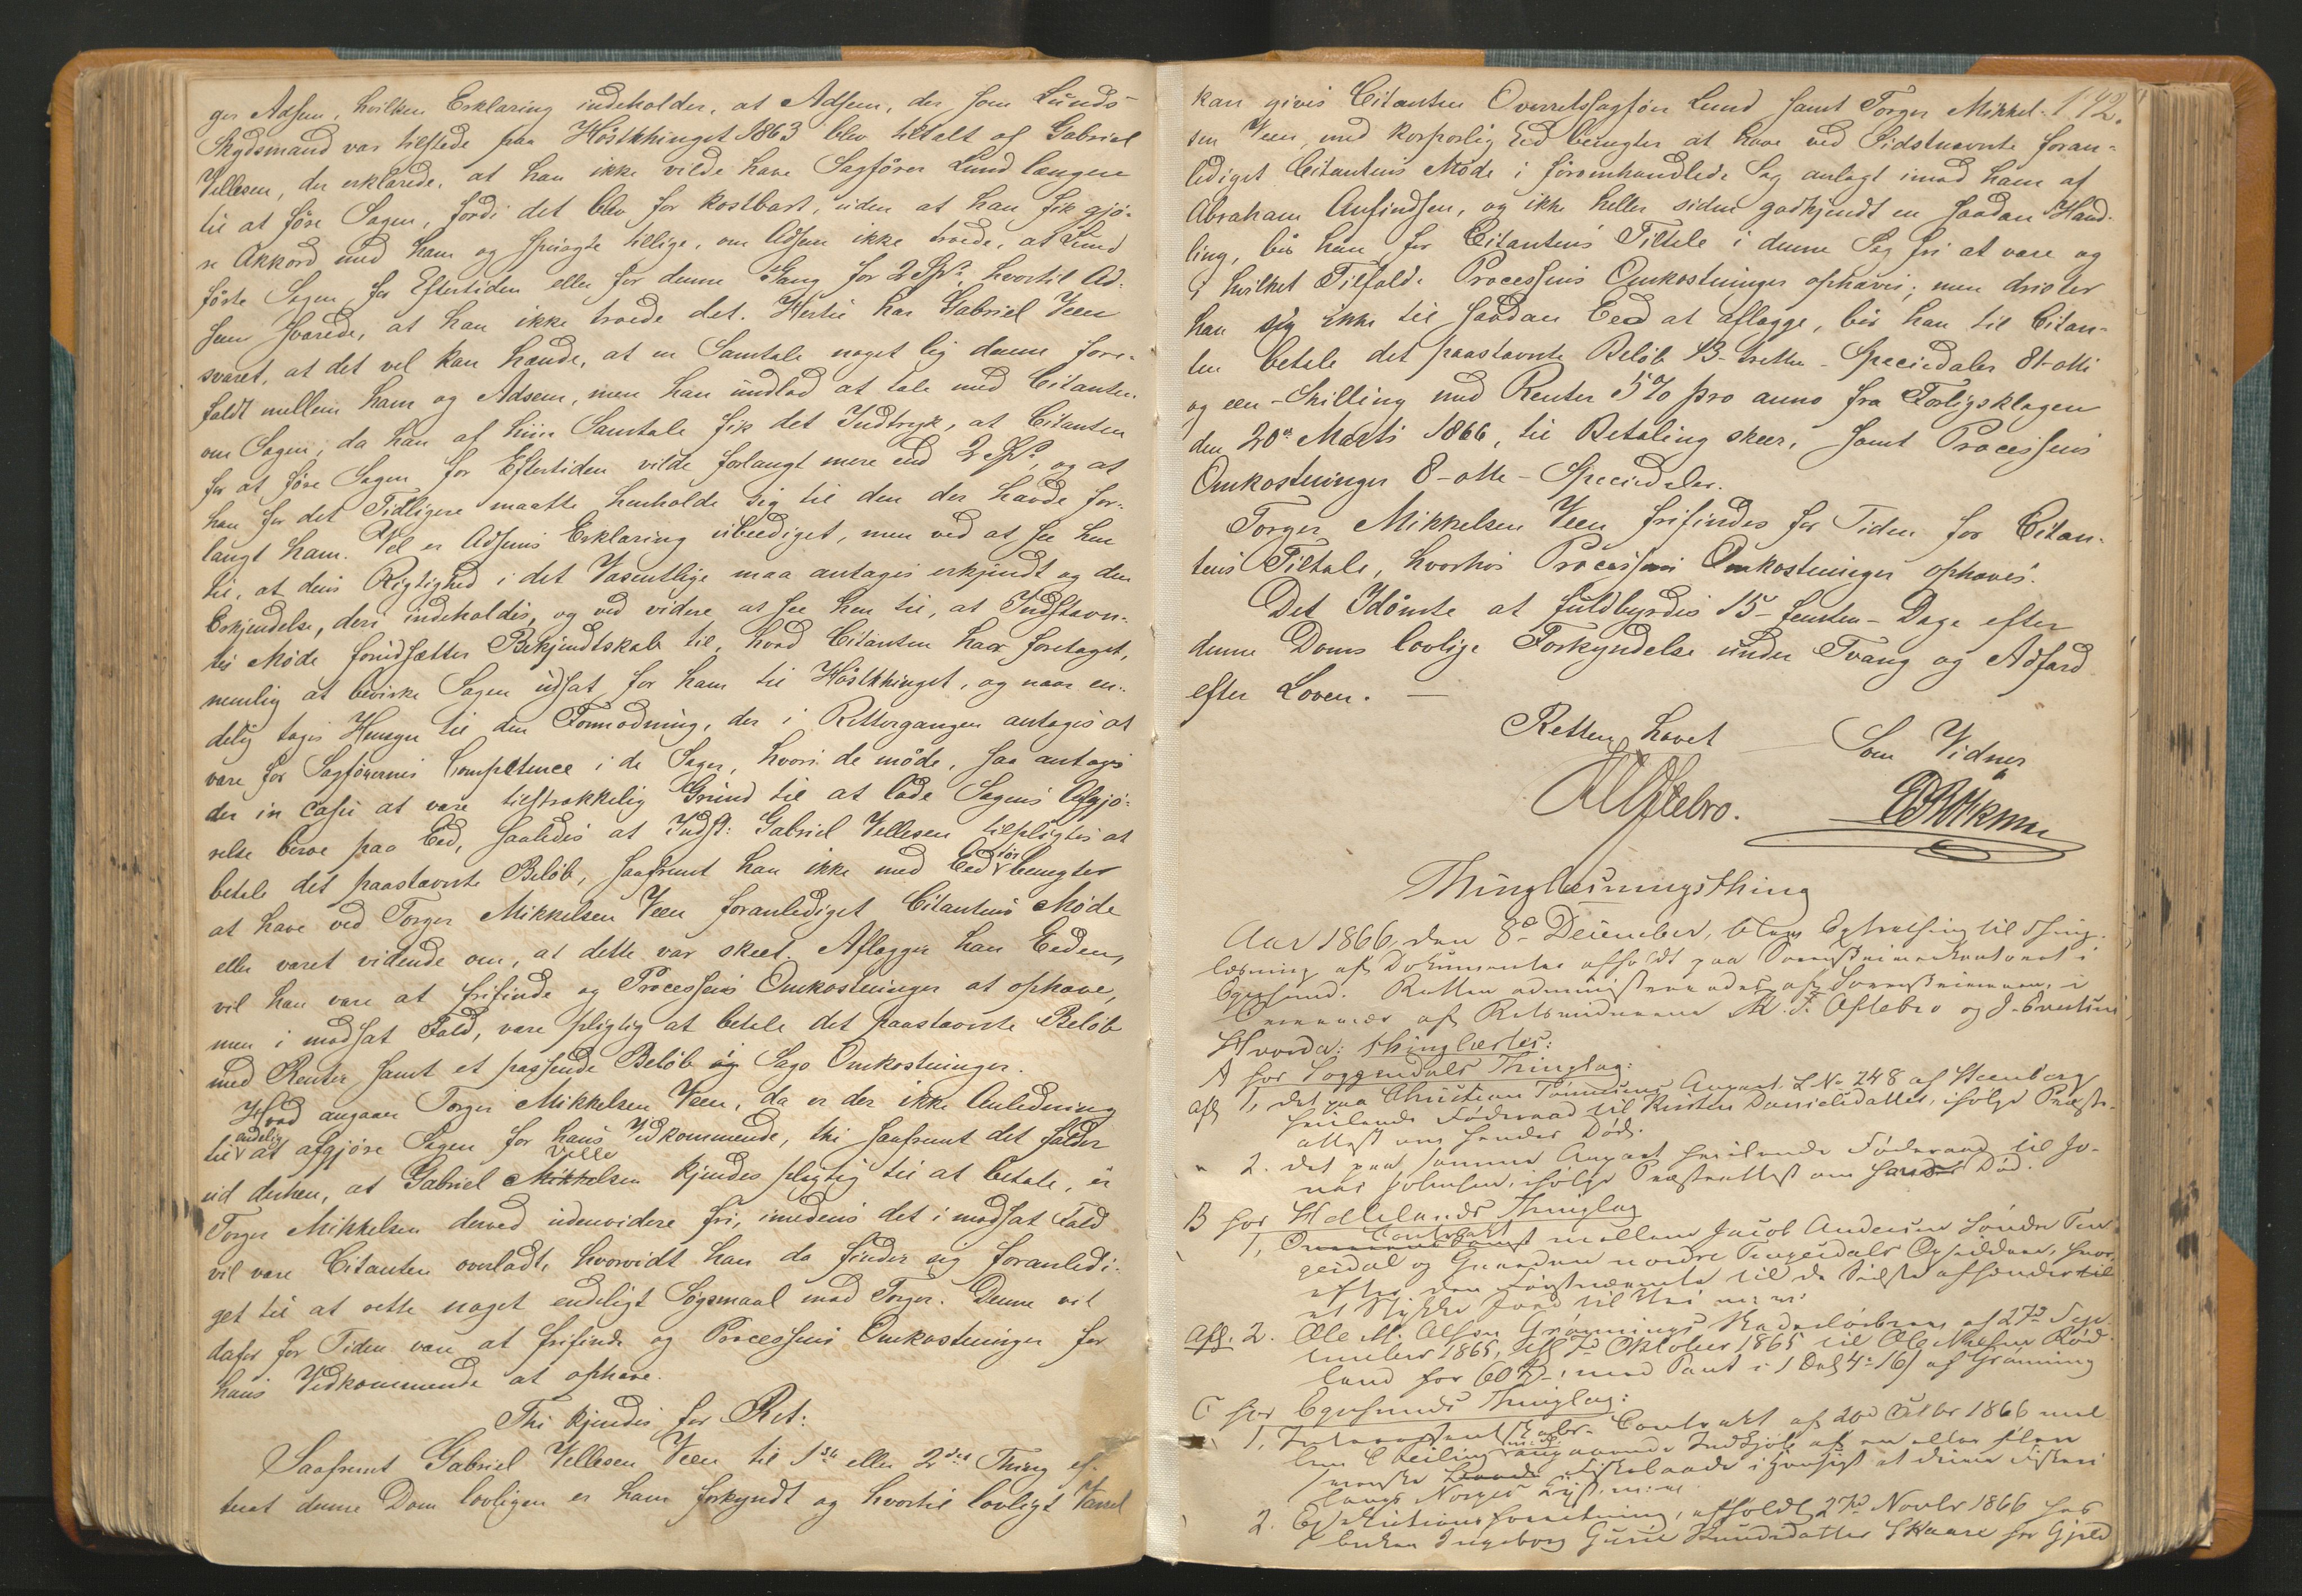 ger Adsem, hvilken Erklaring indeholder, at Adsem, der som Lunds-
Skydsmand var tilstede paa Høstthinget 1863 blev tiltalt af Gabriel
Vellesen, der erklarede, at han ikke vilde have Sagfører Lund længere
til at føre Sagen, fordi det blev for kostbart, uden at han fik gjø-
re Akkord med ham og spurgte tillige, om Adsem ikke troede, at Lund
førte Sagen for Eftertiden eller for denne Gang for 2 Spd, hvortil Ad-
sem svarede, at han ikke troede det. Hertil har Gabriel Veen
svaret, at det vel kan hænde, at en Samtale noget lig denne fore-
faldt mellem ham og Adsem, men han undlod at tale med Citanten
om Sagen, da han af hiin Samtale fik det Indtryk, at Citanten
for at føre Sagen for Eftertiden vilde forlangt mere end 2 Spd, og at
han for det Tidligere maatte henholde sig til den der havde for-
langt ham. Vel er Adsems Erklaring ubeediget, men ved at see hen
til, at dens Rigtighed i det Væsentlige maa antages erkjendt og den
Erkjendelse, deri indeholdes, og ved videre at see hen til, at Indstævn-
tes Møde forudsætter Bekjendtskab til, hvad Citanten har foretaget,
nemlig at bevirke Sagen udsat for ham til Høstthinget, og naar en-
delig tages Hensyn til den Formodning, der i Rettergangen antages at
være for Sagførernes Competence i de Sager, hvori de møde, saa antages
der in casu at være tilstrækkelig Grund til at lade Sagens Afgjø-
relse beroe paa Eed, saaledes at Indst: Gabriel Vellesen tilpligtes at
betale det paastævnte Beløb, saafremt han ikke med Eed tør benegter
at have ved Torger Mikkelsen Veen foranlediget Citantens Møde
eller været vidende om, at dette var skeet. Aflægger han Eeden,
vil han være at frifinde og Processens Omkostninger at ophæve,
men i modsat Fald, være pligtig at betale det paastævnte Beløb
med Renter samt et passende Beløb og Sags Omkostninger.
Hvad angaaer Torger Mikkelsen Veen, da er der ikke Anledning
til endelig at afgjøre Sagen for hans Vidkommende, thi saafremt det falder
ud derhen, at Gabriel Vellesen kjendes pligtig til at betale, er
Torger Mikkelsen derved udenvidere fri, imedens det i modsat Fald
vil være Citanten overladt, hvorvidt han da finder sig foranledi-
get til at rette noget endeligt Søgsmaal mod Torger. Denne vil
dafor for Tiden være at frifinde og Processens Omkostninger for
hans Vidkommende at ophæve.
Thi kjendes for Ret:
Saafremt Gabriel Vellesen Veen til 1ste eller 2det Thing ef-
terat denne Dom lovligen er ham forkyndt og hvortil lovligt Varsel
192.
kan gives Citanten Overretssagfører Lund samt Torger Mikkel-
sen Veen, med korporlig Eed benegter at have ved Sidstnævnte foran-
lediget Citantens Møde i føromhandlede Sag anlagt imod ham af
Abraham Anfindsen, og ikke heller siden godkjendt en saadan Hand-
ling, bør han for Citantens Tiltale i denne Sag fri at være og
i hvilket Tilfælde Processens Omkostninger ophæves; men drister
han sig ikke til saadan Eed at aflægge, bør han til Citan-
ten betale det paastævnte Beløb 13-tretten-Speciedaler 81-otti
og een-Skilling med Renter 5% pro anno fra Forligsklagen
den 20de Marts 1866, til Betaling skeer, samt Processens
Omkostninger 8-otte-Speciedaler.
Torger Mikkelsen Veen frifindes for Tiden for Citan-
tens Tiltale, hvorhos Processens Omkostninger ophæves.
Det Idømte at fuldbyrdes 15-femten-Dage efter
denne Doms lovlige Forkyndelse under Tvang og Adfærd
efter Loven.
Retten hævet
Som Vidner
Aftebro.
Thinglæsningsthing
Aar 1866, den 8de December, blev Extrathing til Thing-
læsning af Dokumenter afholdt paa Sorenskriverkontoret i
Egersund. Retten administreredes af Sorenskriveren, i
Overvær af Retsvidnerne M. T. Aftebro og J. Evertsen
Hvorda: thinglæstes:
A for Soggendals Thinglag:
afl 1, det paa Christian Tønnesens Anpart L No 248 af Steenberg
heilende Føderaad til Kirsten Danielsdatter, ifølge Præste-
attest om hendes Død.
2. det paa samme Anpart heilende Føderaad til Jo-
nas Johnsen, ifølge Præsteattest om hans Død.
B for Hellelands Thinglag
1, Contrakt mellem Jacob Andersen søndre Ten-
geidal og Gaarden nordre Tengesdals Opsiddere, hvor-
efter den Førstnævnte til de Sidste afhænder
et Stykke Jord til Vei m: m:
Afl. 2. Ole M. Olsen Grønnings Skadesløsbrev af 27de Sep-
tember 1865, thl 7de Oktober 1865 til Ole Nielsen Rød-
land for 60 Spd, med Pant i 1 Dlr 4-16 af Grønning
C for Egersunds Thinglag:
1, Interessentskabs-Contrakt af 20de Octbr 1866 mel-
lem C Feiling m: fl: angaaende Indkjøb af en eller flere
svenske Fiskebaade i Hensigt at drive Fiskeri
langs Norges Kyst m: m.
2. Exekutionsforretning, afholdt 27de Novbr 1866 hos
Enken Ingeborg Gurie Knudsdatter Skaare for Gjæld